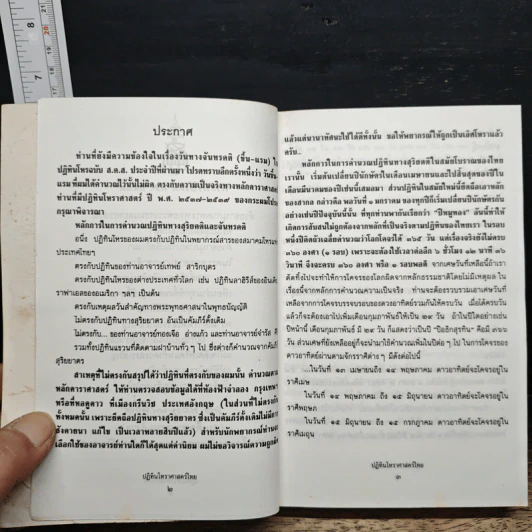 ประกาศ
ท่านที่ยังมีความข้องใจในเรื่องวันทางจันทรคติ (ขึ้น-แรม) ใน
ปฏิทินโหรฉบับ ส.ค.ส. ประจำปีที่ผ่านมา โปรดทราบอีกครั้งหนึ่งว่า วันขึ้น
แรมที่ผมได้คำนวณไว้นั้นไม่ผิด ตรงกับความเป็นจริงทางหลักดาราศาสตร์
ท่านที่มีปฏิทินโหราศาสตร์ ปี พ.ศ. ของกระผมโปรด
กรุณาพิจารณา
หลักการในการคำนวณปฏิทินทางสุริยคติและจันทรคติ
อนึ่ง ปฏิทินโหรของผมตรงกับปฏิทินในพยากรณ์สารของสมาคมโหรแห่ง
ประเทศไทยฯ
ตรงกับปฏิทินของท่านอาจารย์เทพย์ สาริกบุตร
ตรงกับปฏิทินโหรของต่างประเทศทั่วโลก เช่น ปฏิทินลาฮิรีส์ของอินเดีย
ราฟาเอลของอเมริกา ฯลฯ เป็นต้น
ตรงกับเหตุผลวันสำคัญทางพระพุทธศาสนาในพุทธบัญญัติ
ไม่ตรงกับปฏิทินทางสุริยยาตร อันเป็นคัมภีร์ดั้งเดิม
ไม่ตรงกับ... ของท่านอาจารย์ทองเจือ อ่างแก้ว และท่านอาจารย์จำรัส
รวมทั้งปฏิทินแขวนที่ติดตามฝาบ้านทั่ว ๆ ไป ซึ่งต่างก็คำนวณจากคัมภีร์
สุริยยาตร
สาเหตุที่ไม่ตรงกันสรุปได้ว่าปฏิทินที่ตรงกับของผมนั้น คำนวณตาม
หลักดาราศาสตร์ ให้ท่านตรวจสอบข้อมูลได้ที่ท้องฟ้าจำลอง กรุงเทพฯ
หรือที่หอดูดาว ที่เมืองกรีนวิช ประเทศอังกฤษ (ในส่วนที่ไม่ตรงกัน
ทั้งหมดนั้น เพราะยึดถือปฏิทินทางสุริยยาตร ซึ่งเป็นคัมภีร์ดั้งเดิมไม่มีการ
สังคายนา แก้ไข เป็นเวลาหลายสิบปีแล้ว) สำหรับนักพยากรณ์ท่าน
เลือกใช้ของอาจารย์ท่านใดก็ได้สุดแต่ค่านิยม ผมไม่ขอวิจารณ์ความถูกผิด
ปฏิทินโหราศาสตร์ไทย
๒
แล้วแต่นานาทัศนะใช้ได้ดีทั้งนั้น ขอให้พยากรณ์ให้ถูกเป็นเลิศโหราแล้ว
ครับ..
หลักการในการคำนวณปฏิทินทางสุริยคติในสมัยโบราณของไทย
เรานั้น เริ่มต้นเปลี่ยนปีนักษัตรในเดือนเมษายนและไปสิ้นสุดของปีใน
เดือนมีนาคมของปีเช่นนี้เสมอมา ส่วนปฏิทินในสมัยใหม่นี้ยึดถือเอาหลัก
ของสากล กล่าวคือ พอวันที่ ๑ มกราคม ของทุกปีก็เริ่มเปลี่ยนปีนักษัตรกัน
อย่างเช่นปีปัจจุบันนี้นั้น ที่ทุกท่านพากันเรียกว่า "ปีหมูทอง" อันนี้ทำให้
เกิดการสับสนไม่ถูกต้องจากหลักที่เป็นจริงตามปฏิทินของไทยเรา ในรอบ
หนึ่งปีคิดถัวเฉลี่ยคำนวณว่าโลกโคจรได้ ๓๖๕ วัน แต่โคจรจริงยังไม่ครบ
๓๖๐ องศา (๑ รอบ) เพราะจะต้องใช้เวลาต่ออีก ๖ ชั่วโมง ๑๒ นาที ๓๖
วินาที จึงจะครบ ๓๖๐ องศา หรือ ๑ รอบพอดี จากเศษวันที่เหลือนี้ถ้าเรา
ตัดทิ้งไปจะทำให้การโคจรของโลกผิดจากหลักธรรมชาติโดยไม่มีเหตุผล ใน
เรื่องนี้จากหลักการคำนวณความเป็นจริง ท่านจะต้องรวบรวมเอาเศษวันที่
เหลือจากการโคจรบรรจบรอบของดวงอาทิตย์รวมกันให้ครบวัน เมื่อได้ครบวัน
แล้วก็จะต้องเอาไปเพิ่มเดือนกุมภาพันธ์ให้เป็น ๒๙ วัน ถ้าในปีใดอย่างเช่น
ปีหน้านี้ เดือนกุมภาพันธ์ มี ๒๙ วัน ก็แสดงว่าเป็นปี "ปีอธิกสุรทิน" คือมี ๓๖๖
วัน ส่วนเศษที่ยังเหลืออยู่ก็จะนำมาใช้คำนวณเพิ่มในปีต่อ ๆ ไป ในการโคจรของ
ดาวอาทิตย์ผ่านตามจักรราศีต่าง ๆ มีดังต่อไปนี้
ในวันที่ ๑๓ เมษายน ถึง ๑๔ พฤษภาคม ดาวอาทิตย์จะโคจรอยู่ใน
ราศีเมษ
ในวันที่ ๑๔ พฤษภาคม ถึง ๑๕ มิถุนายน ดาวอาทิตย์จะโคจรอยู่ใน
ราศีพฤษภ
ในวันที่ ๑๕ มิถุนายน ถึง ๑๕ กรกฎาคม ดาวอาทิตย์จะโคจรอยู่ใน
ราศีเมถุน
ปฏิทินโหราศาสตร์ไทย
๓
7
8